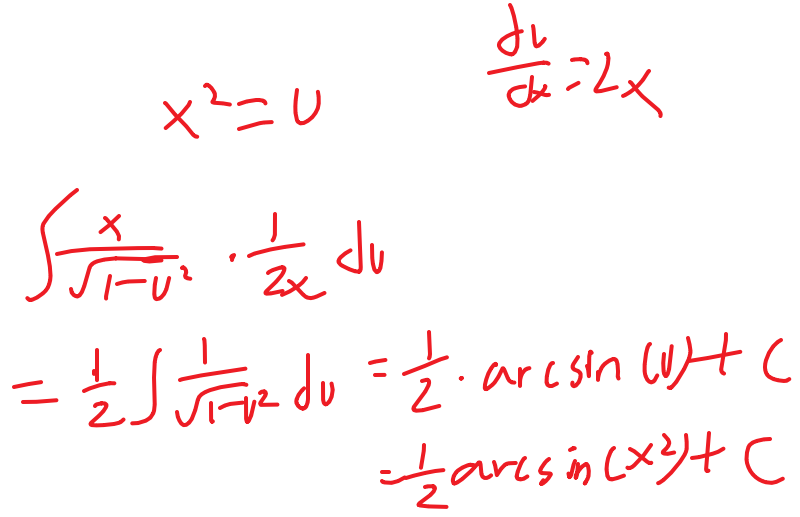 x² = u
du/dx = 2x
∫ x/√(1-u²) · 1/(2x) du
= 1/2 ∫ 1/√(1-u²) du = 1/2 · arcsin(u) + C
= 1/2 arcsin(x²) + C